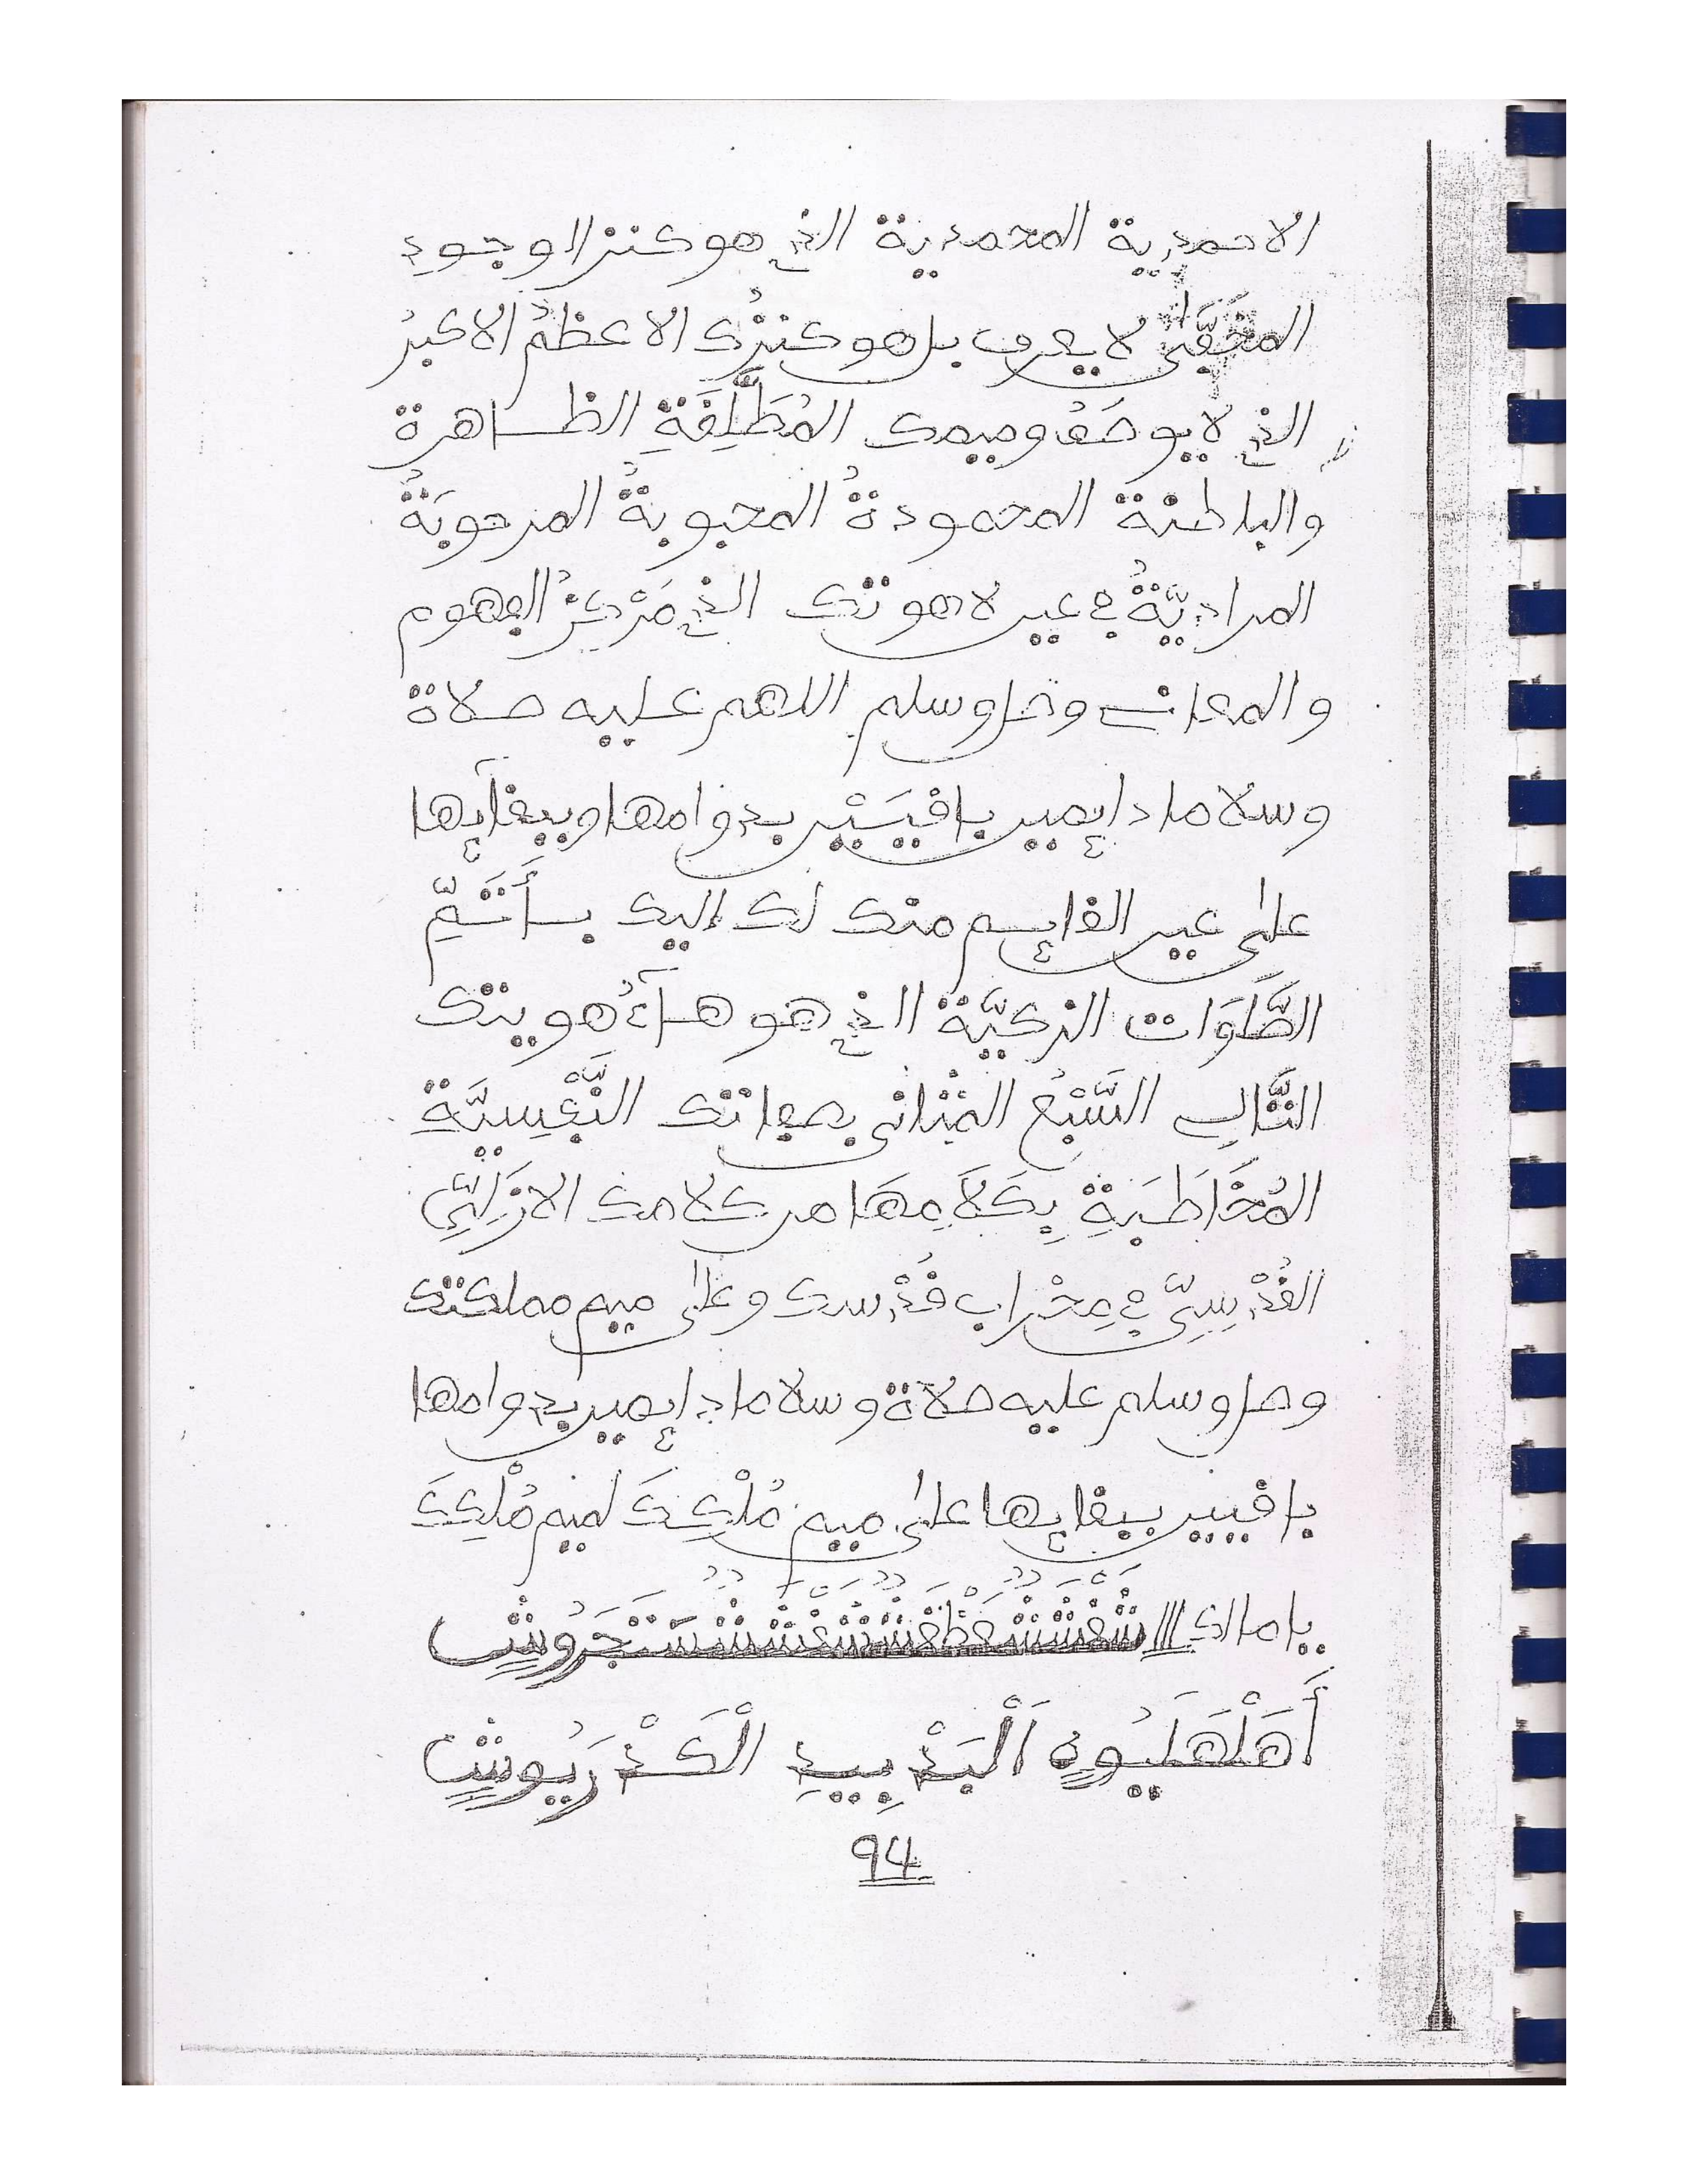 الاحمدية المحمدية الذي هو كنز الوجود
المخفى لا يعرف بل هو كنزك الاعظم الاكبر
الذي لا يوصف وميمك المُطَلَّقَةِ الظاهرة
والباطنة المحمودةُ المحبوبةُ المرحوبَةُ
المراديَّةُ في عين لاهوتك الذي مَرْكَزُ الفهوم
والمعاني وصل وسلم اللهم عليه صلاة
وسلاما دايمين باقيَيْن بدوامها وببقآيها
على عين القايم منك لك إليك بأَتَمِّ
الصَّلَوَات الزكيَّة الذي هو هآءُ هويتك
التَّالي السَّبْعُ المثاني بصفاتك النَّفْسِيَّةِ
المُخَاطَبَةِ بِكَلَامِهَا من كلامك الازَلِيِّ
القُدْسِيِّ في مِحْرَاب قُدْسك وعلى ميم مملكتك
وصل وسلم عليه صلاة وسلاما دايمين بدوامها
باقيين ببقايها على ميم مُلْكِكَ لميم مُلْكِكَ
يا مالك
أَهَلْهَلَيُوهٍ اَلْبَدْبِيدِ الْكَدْرَيُوشٍ
94